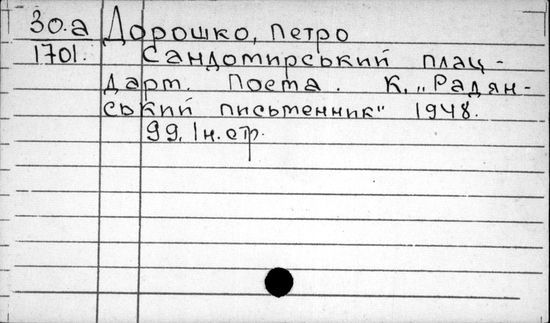 30.а Дорошко, Петро
1701. Сандомирський плац-
дарт. Поета. К. „Радян-
ський письтенник" 1948.
99, Ін. стр.